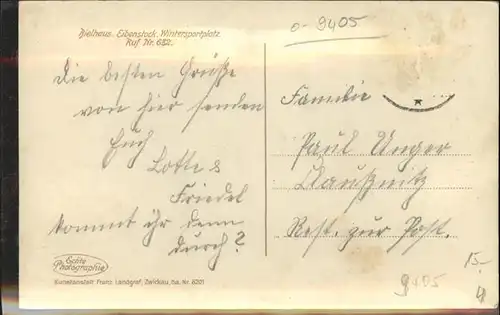 Bielhaus. Eibenstock. Wintersportplatz.
Ruf Nr. 652.
0-9405
Die besten Grüße
von hier senden
Euch
Lotte &
Friedel
kommt ihr denn
durch?
Familie
Paul Unger
Claußnitz
Rest. zur Post.
Echte
Photographie
Kunstanstalt Franz Landgraf, Zwickau, Sa. Nr. 8201
9405
15.-